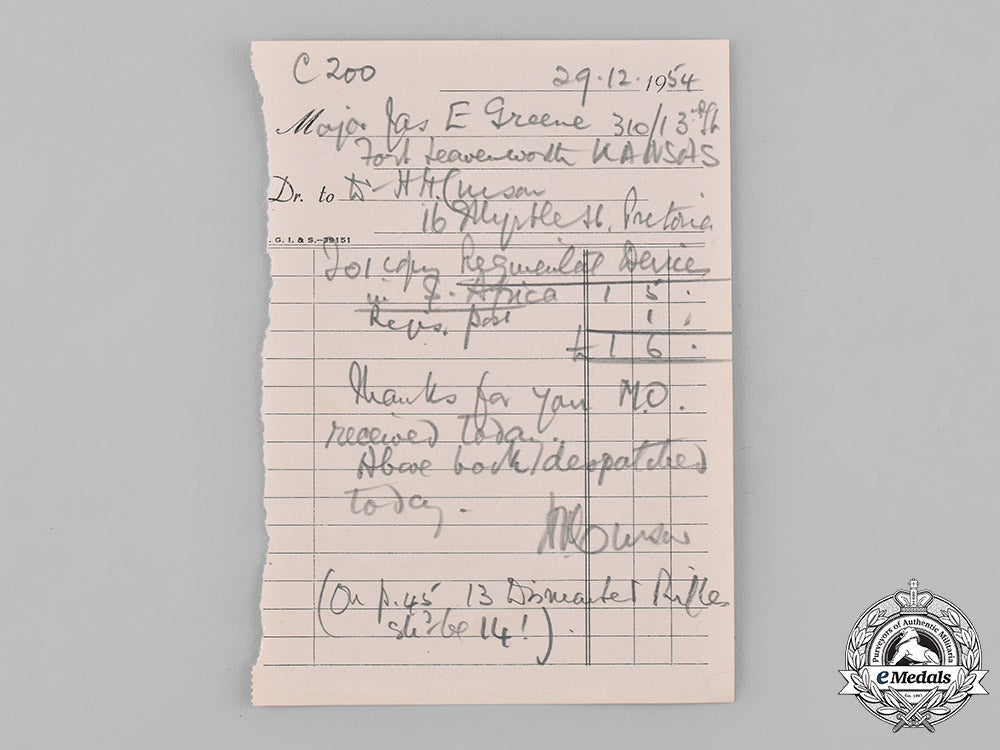 C 200
29.12.1954
Major Jas E Greene 310/13
Fort Leavenworth KANSAS
Dr. to H H Curson
16 Myrtle St, Pretoria
G. I. & S.—39151
To 1 copy Regimental Devices
in S. Africa 1 5 .
Regs. post 1 .
£ 1 6 .
Thanks for your M.O.
received today.
Above book despatched
today.
HH Curson
(On p. 45 13 Dismounted Rifles
sh'd be 14!).
Purveyors of Authentic Militaria
eMedals